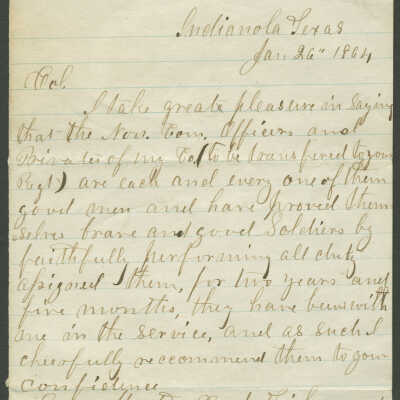 Indianola Texas
Jan 26th 1864
Col.
I take great pleasure in saying
that the Non. Com. Officers and
Privates of my Co (to be transfered to your
Regt) are each and every one of them
good men and have proved them
selves brave and good Soldiers by
faithfully performing all duty
assigned them, for two years and
five months, they have been with
me in the service, and as such I
cheerfully reccommend them to your
confidence